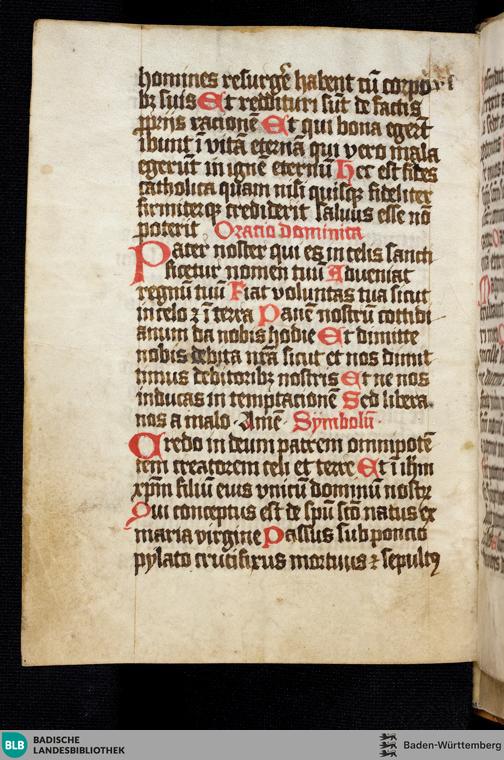 homines resurgẽ habent cũ corpori
bꝫ suis Et reddituri sũt de factis
ꝓprijs racionẽ Et qui bona egerũt
ibunt ĩ vitã eternã qui vero mala
egerũt in ignẽ eternũ Hec est fides
catholica quam nisi quisqꝫ fideliter
firmiterqꝫ crediderit saluus esse nõ
poterit Oratio dominica
Pater noster qui es in celis sancti
ficetur nomen tuũ Adveniat
regnũ tuũ Fiat voluntas tua sicut
in celo ⁊ ĩ terra Panẽ nostrũ cottidi
anum da nobis hodie Et dimitte
nobis debita nr̃a sicut et nos dimit
timus debitoribꝫ nostris Et ne nos
inducas in temptacionẽ Sed libera
nos a malo · Amẽ · Symbolũ ·
Credo in deum patrem omnipotẽ
tem creatorem celi et terre Et ĩ ihm̃
xp̃m filiũ eius vnicũ dominũ nostrꝫ
Qui conceptus est de sp̃u sc̃o natus ex
maria virgine Passus sub poncio
pylato crucifixus mortuus ⁊ sepultꝰ
BLB
BADISCHE
LANDESBIBLIOTHEK
Baden-Württemberg